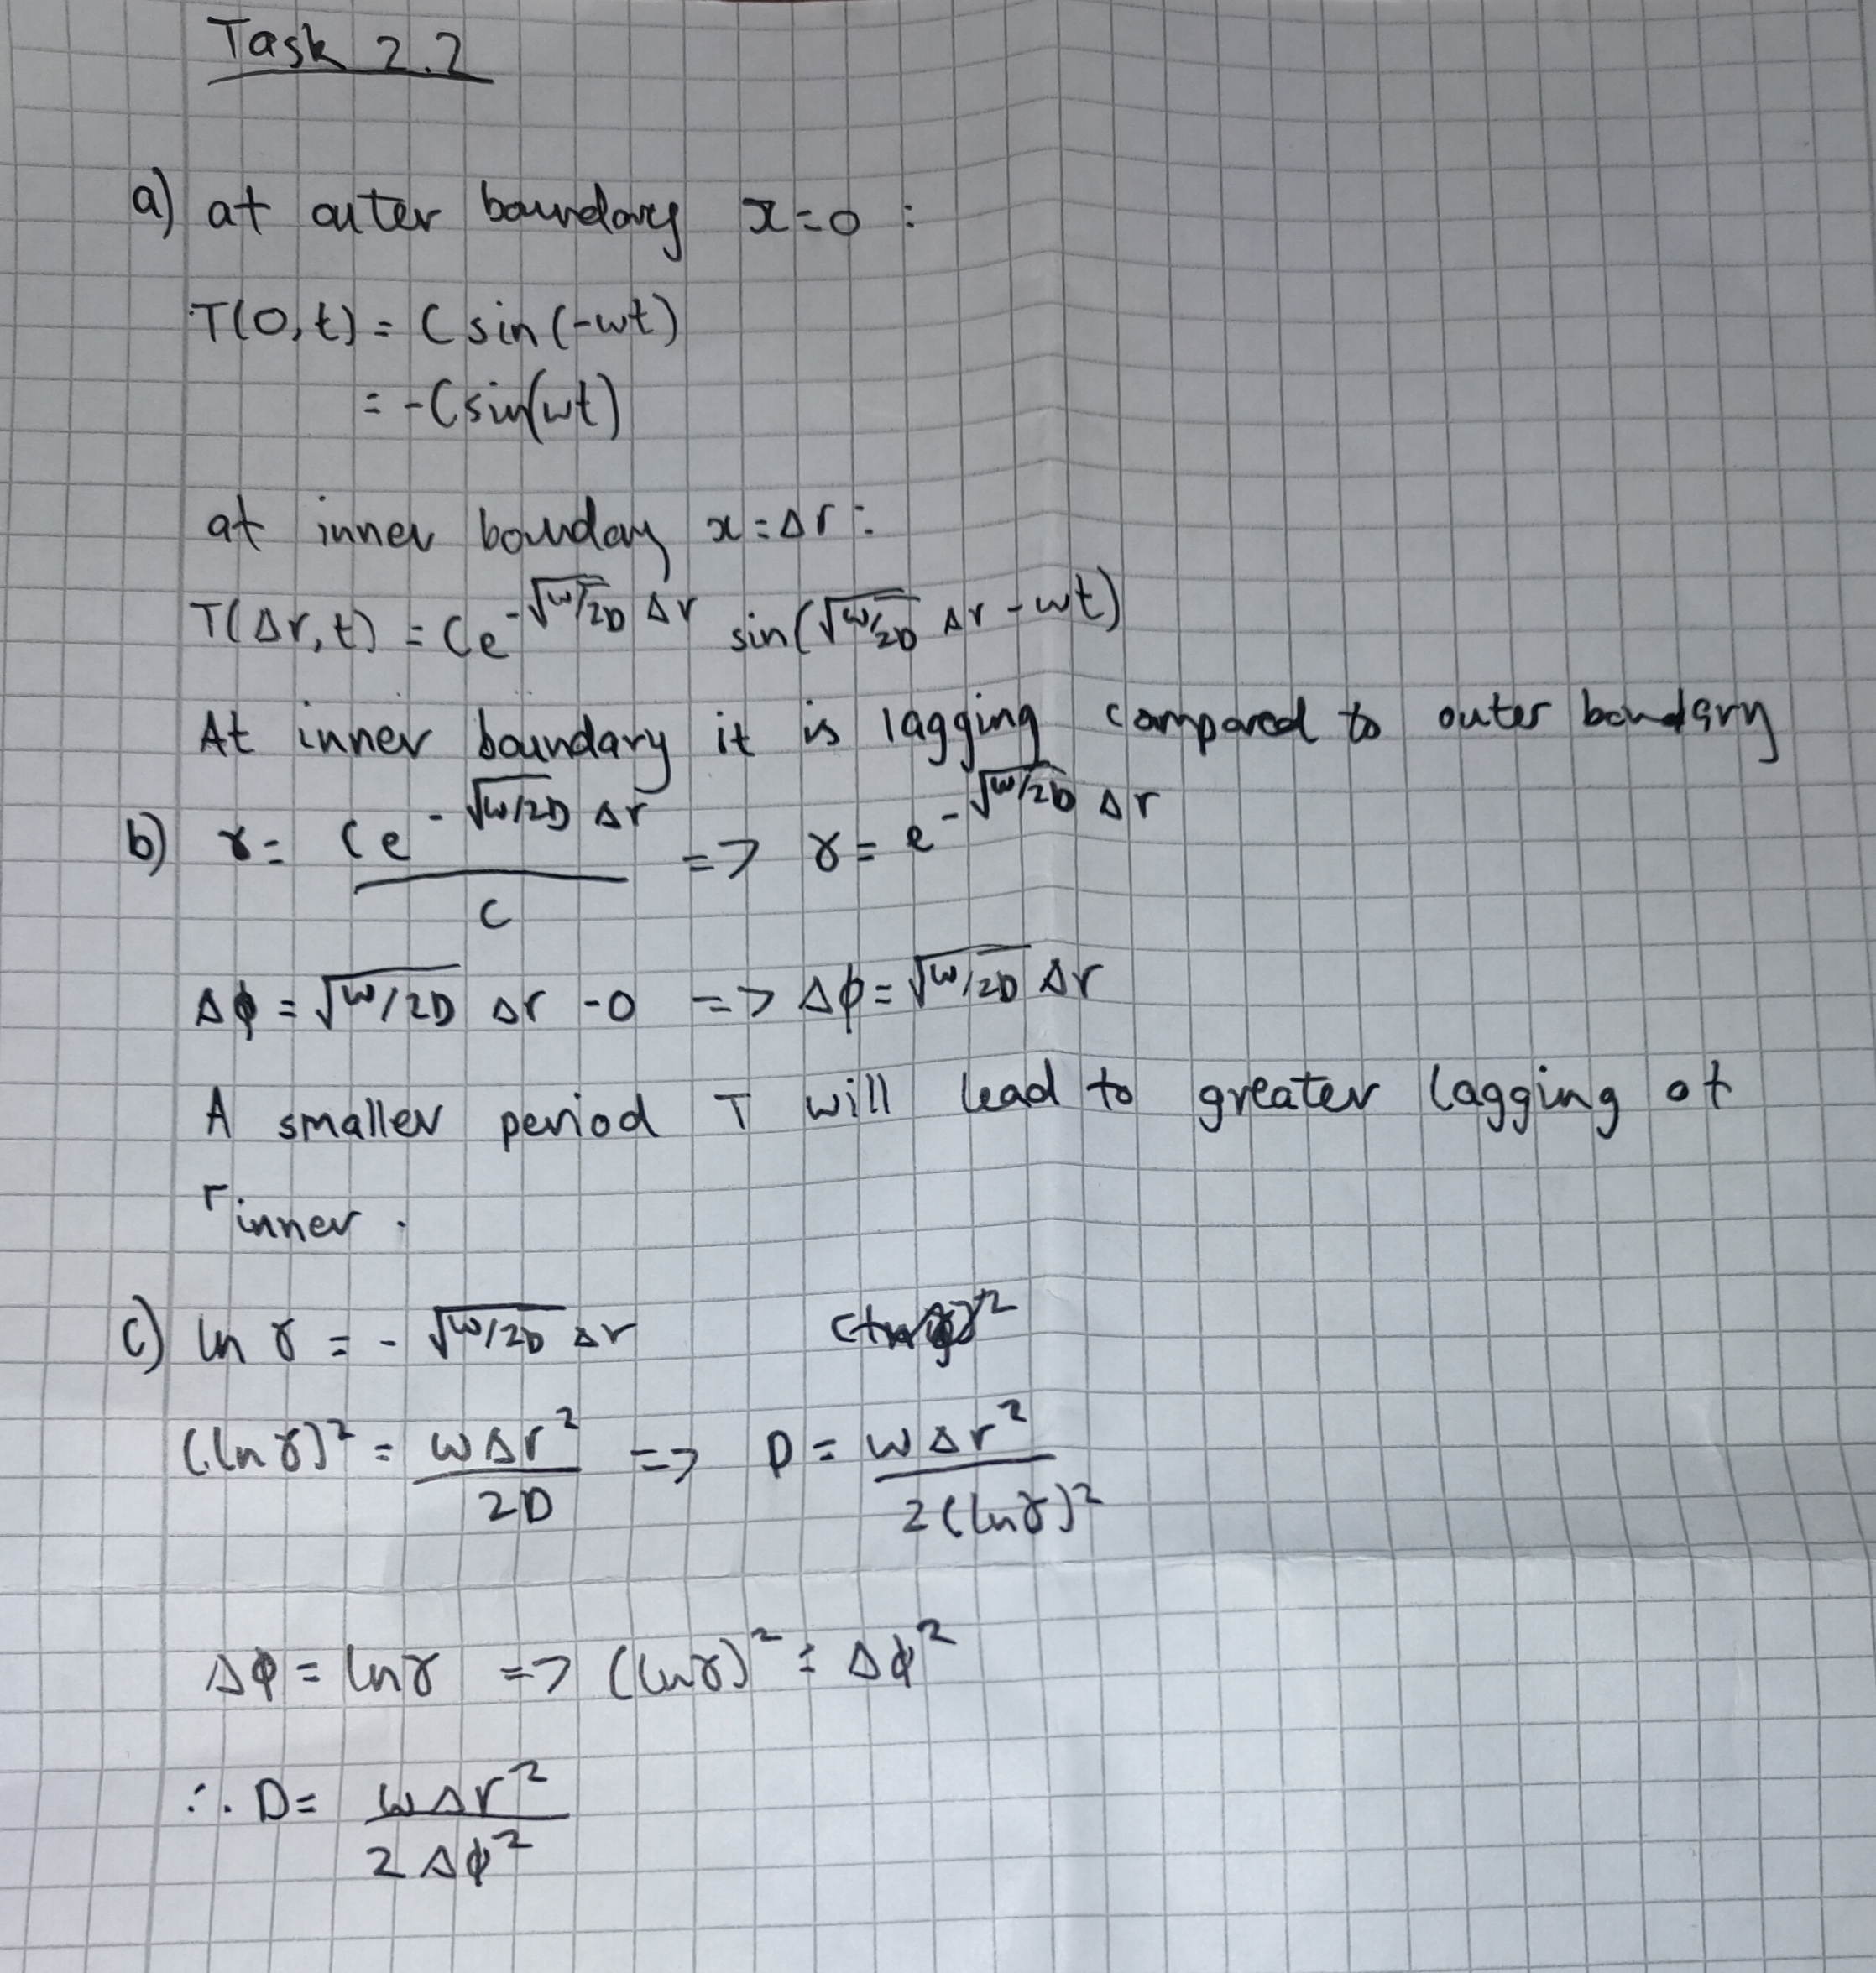 Task 2.2
a) at outer boundary x=0 :
T(0,t) = C sin(-wt)
= -C sin(wt)
at inner bounday x = Δr :
T(Δr,t) = Ce^{-√(w/2D) Δr} sin(√(w/2D) Δr - wt)
At inner boundary it is lagging compared to outer boundary
b) γ = Ce^{-√(w/2D) Δr} / C => γ = e^{-√(w/2D) Δr}
Δϕ = √(w/2D) Δr - 0 => Δϕ = √(w/2D) Δr
A smaller period T will lead to greater lagging at
r_inner.
c) ln γ = - √(w/2D) Δr
(ln γ)² = wΔr² / 2D => D = wΔr² / 2(ln γ)²
Δϕ = ln γ => (ln γ)² = Δϕ²
∴ D = wΔr² / 2Δϕ²